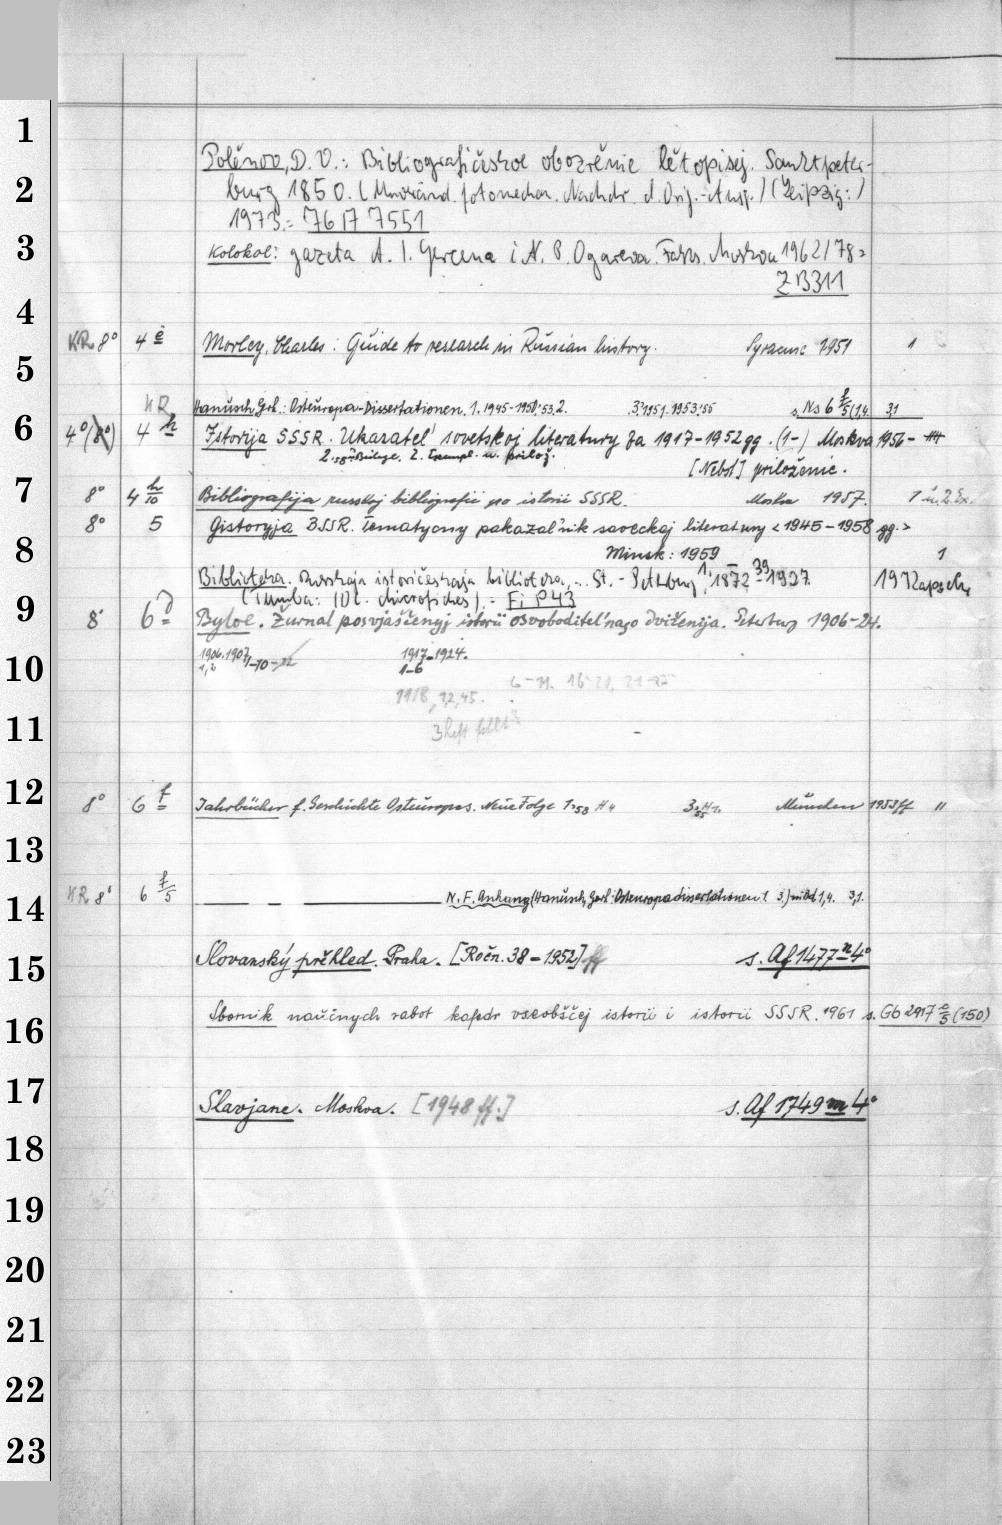 1
Polěnov, D. V.: Bibliografičeskoe obozrěnie lětopisej. Sanktpeter-
2
burg 1850. (Unveränd. fotomechan. Nachdr. d. Orig.-Ausg.) (Leipzig:)
1973.= 76 17 7551
3
Kolokol: gazeta A. I. Gercena i N. P. Ogareva. Faks. Moskva 1962/78 =
ZB311
4
KR 8° 4 e Morley, Charles: Guide to research in Russian history. Syracuse 1951 1
5
KR Hanusch, Gerh.: Osteuropa-Dissertationen. 1. 1945-1950;53, 2. 3.1951-1953;55 s. Ns 6 f/5 (1,4 3,1
6
4° (8°) 4 h Istorija SSSR. Ukazatel' sovetskoj literatury za 1917-1952 gg. (1-) Moskva 1956-
priložž.
[Nebst] priloženie.
7
8° 4 h/10 Bibliografija russkoj bibliografii po istorii SSSR. Moskva 1957. 1 u. 2. Ex.
8° 5 Gistoryja BSSR. Tematyčny pakazal'nik saveckaj literatury <1945-1958 gg.>
8
Minsk: 1959 1
Biblioteka. Russkaja istoričeskaja biblioteka. St.-Peterburg 1, 1872-39, 1927 19 Kapseln
9
(Tumba: IDC. Microfiches).= Fi P43
8° 6 d Byloe. Žurnal posvjaščenyj istorii osvoboditel'nago dviženija. Peterburg 1906-24.
10
1906. 1907, 1-10-12 1917-1924.
1,2 1-6
6-11. 16-20, 21-22
11/8, 12, 45.
11
3 Heft fehlt
12
8° 6 f Jahrbücher f. Geschichte Osteuropas. Neue Folge München 1953 ff "
13
14
KR 8° 6 f/5 — — — N. F. Anhang (Hanusch, Gerh: Osteuropadissertationen 1 3.) in Bd 1,4. 3,1.
15
Slovanský přehled. Praha. [Ročn. 38-1952] ff s. Af 1477 n 4°
16
Sbornik naučnych rabot kafedr vseobščej istorii i istorii SSSR. 1961 s. Gb 2917 c/5 (150)
17
Slavjane. Moskva. [1948 ff.] s. Af 1749 m 4°
18
19
20
21
22
23